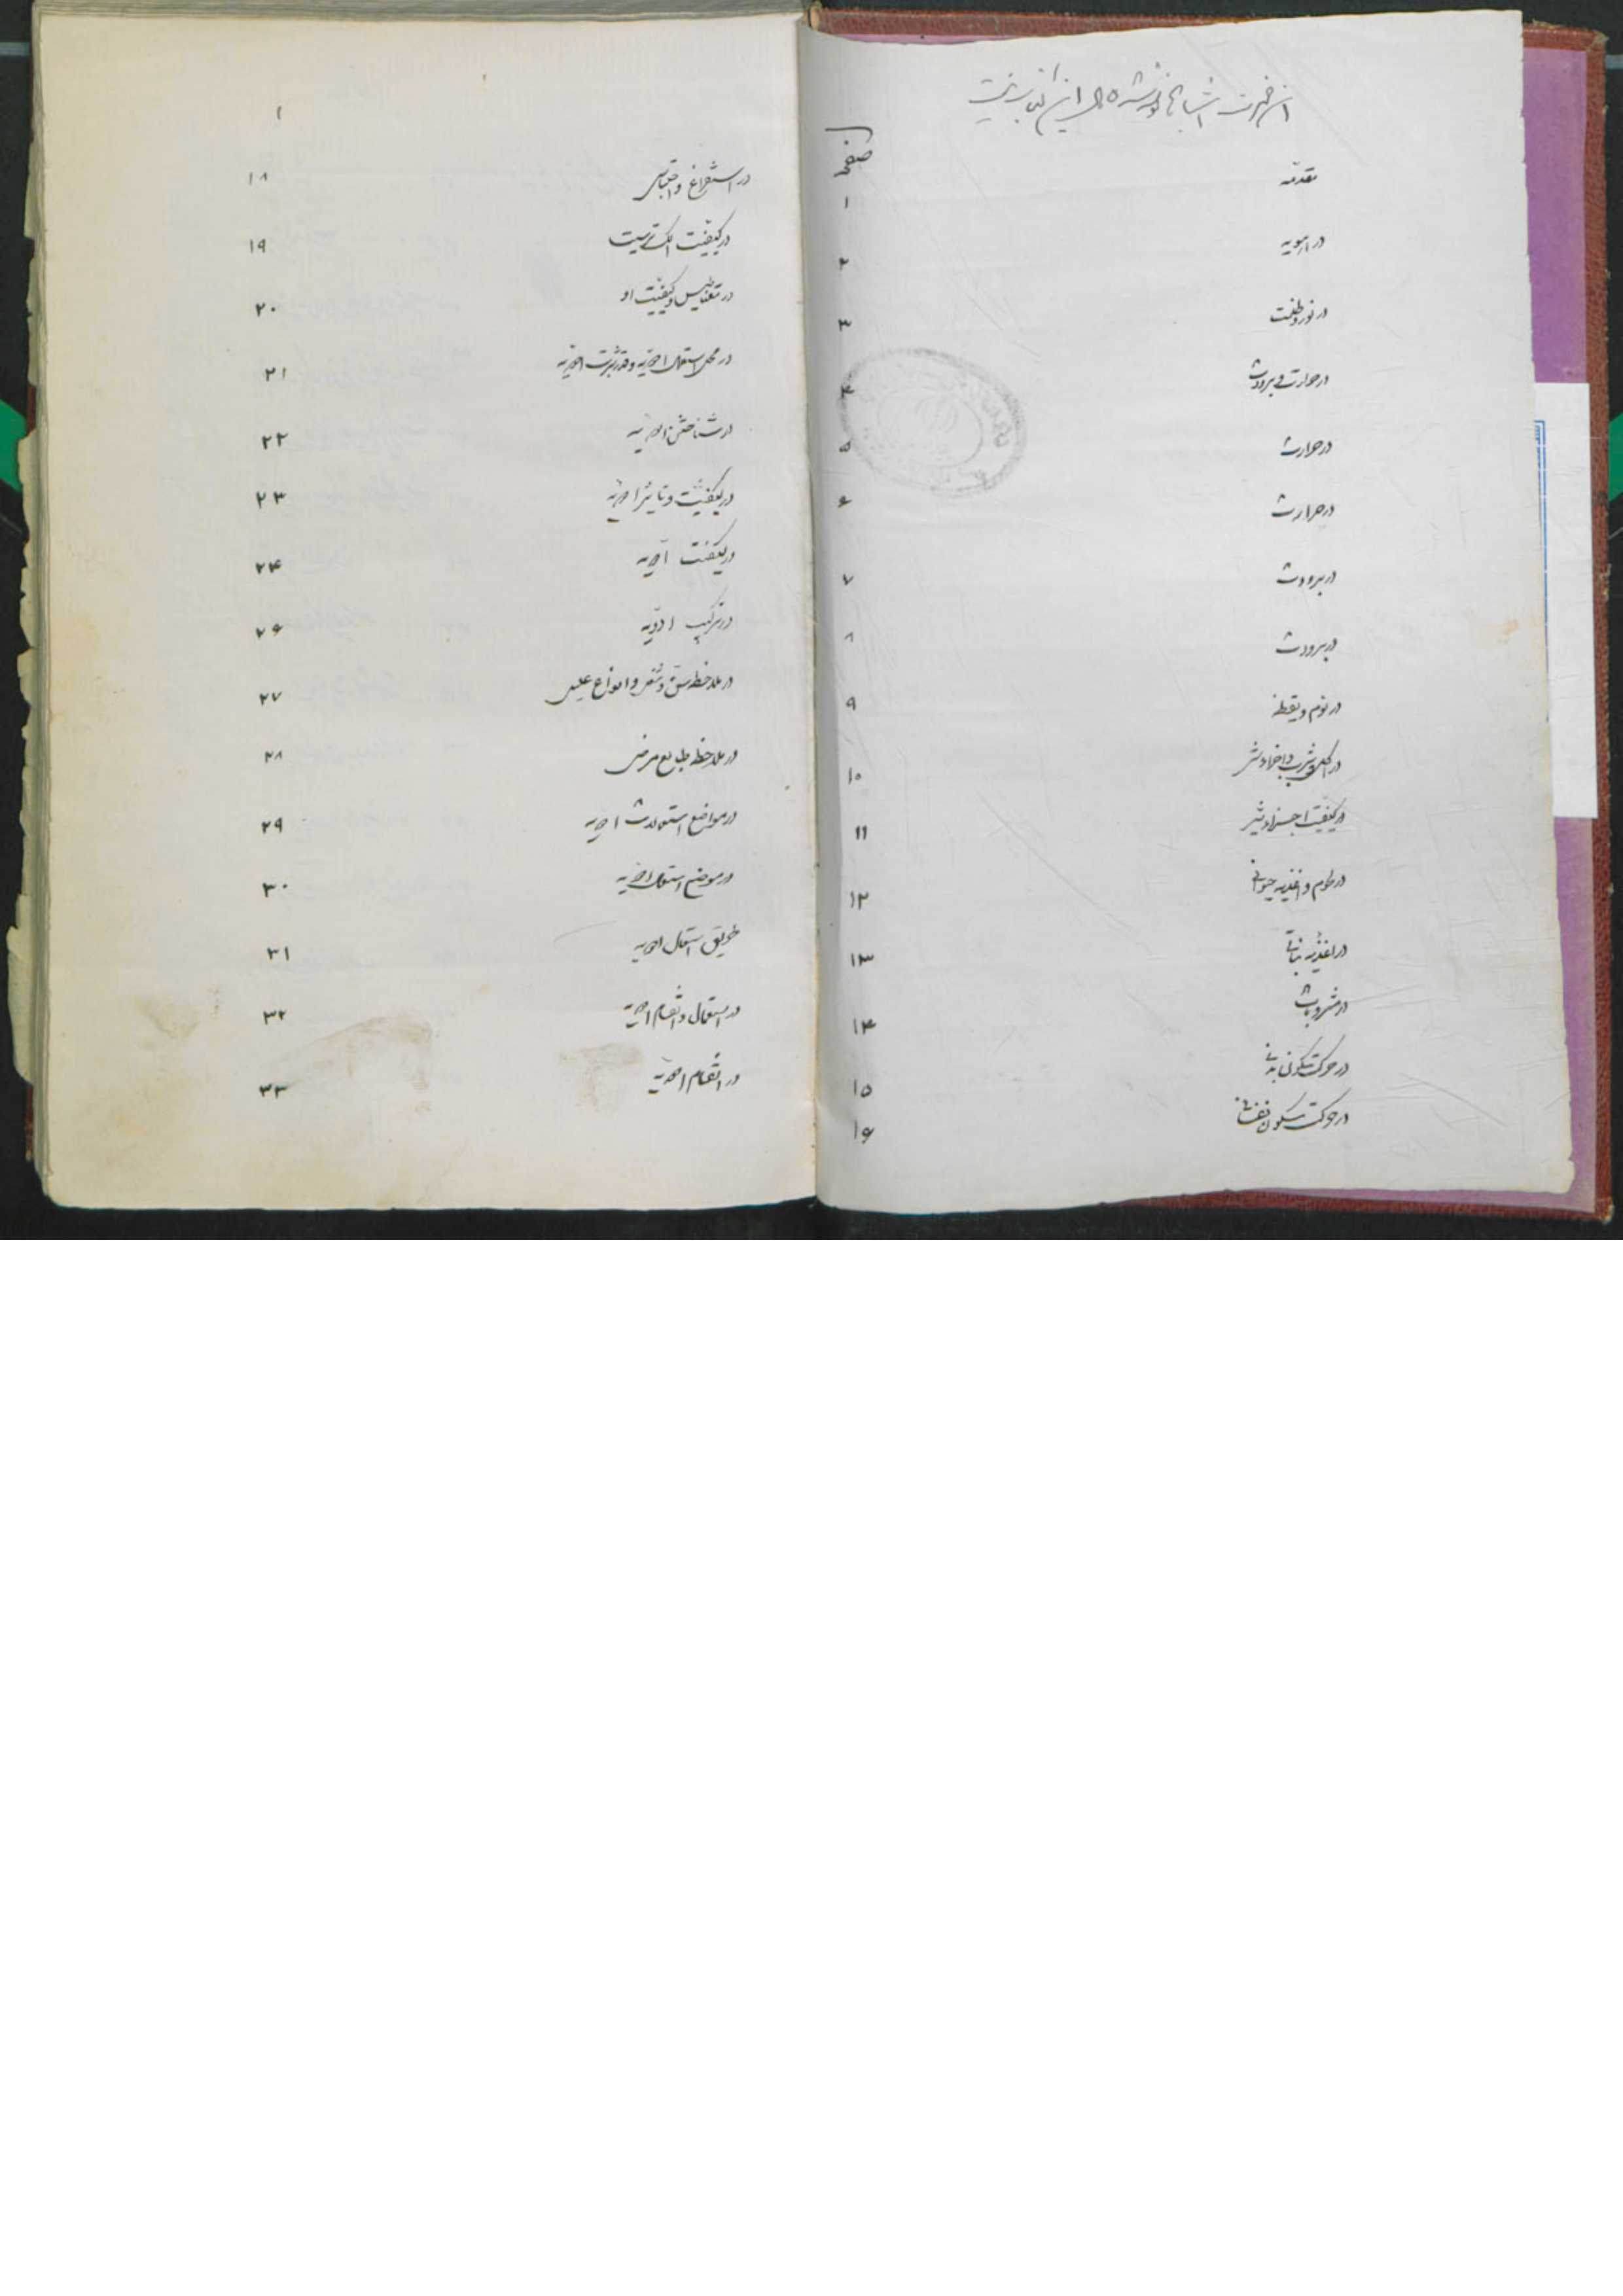 این فهرست اشتباها نوشته شده مال این کتاب نیست
صفحه
مقدمه ۱
در ادویه ۲
در نور و ظلمت ۳
در حرارت و برودت ۴
در حرارت ۵
در حرارت ۶
در برودت ۷
در برودت ۸
در نوم و یقظه ۹
در اکل و شرب و اجزاءش ۱۰
در کیفیت اجزاء شیر ۱۱
در لحوم و اغذیه حیوانی ۱۲
در اغذیه نباتی ۱۳
در مشروبات ۱۴
در حرکت و سکون بدنی ۱۵
در حرکت و سکون نفسانی ۱۶
۱
در استفراغ و احتباس ۱۸
در کیفیت الکتریسیت ۱۹
در مغناطیس و کیفیت او ۲۰
در محل استعمال ادویه و ادویه ۲۱
در شناختن ادویه ۲۲
در کیفیت و تاثیر ادویه ۲۳
در کیفیت ادویه ۲۴
در ترکیب ادویه ۲۶
در ملاحظه سن و و انواع علیل ۲۷
در ملاحظه طبایع مرض ۲۸
در مواضع استعمالات ادویه ۲۹
در موضع استعمال ادویه ۳۰
طریق استعمال ادویه ۳۱
در استعمال و اقسام ادویه ۳۲
در اقسام ادویه ۳۳